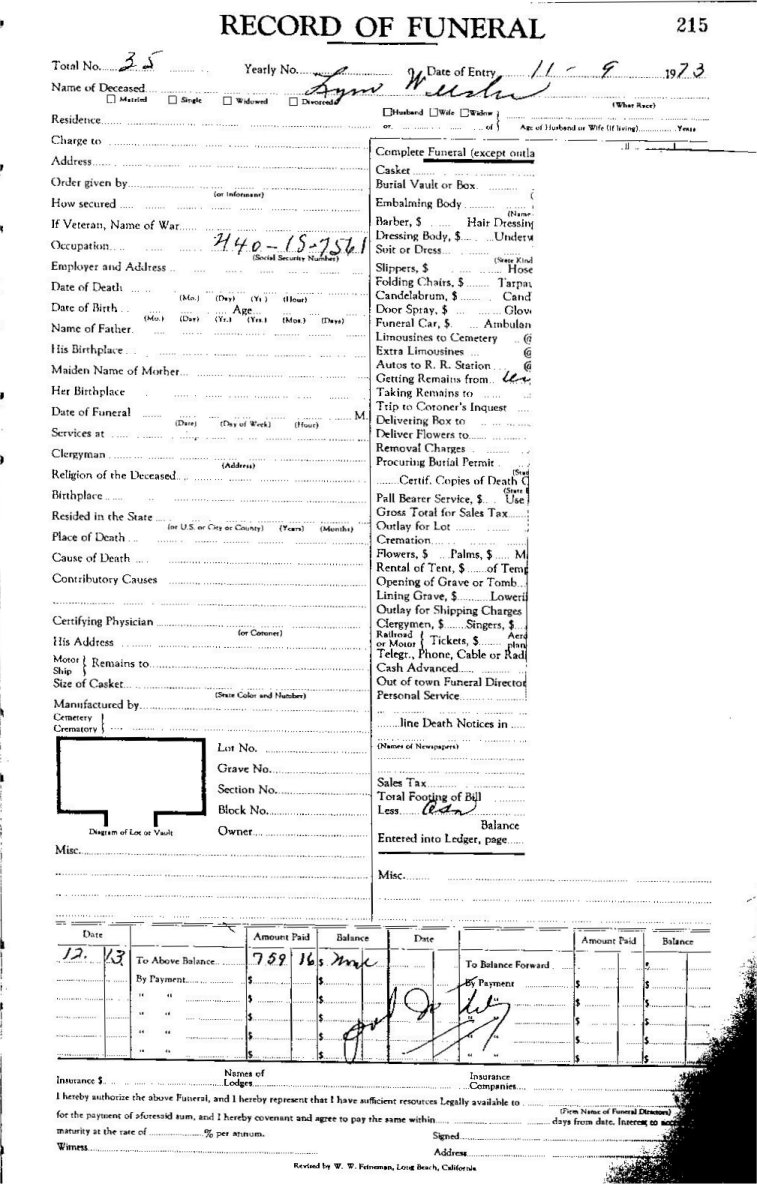 RECORD OF FUNERAL 215
Total No. 35 Yearly No. Date of Entry 11 - 9 1973
Name of Deceased Lynn
Married Single Widowed Divorced
Husband Wife Widow (What Race)
or of Age of Husband or Wife (if living) Years
Residence
Charge to
Address
Order given by
(or Informant)
How secured
If Veteran, Name of War
Occupation 440-15-7561
(Social Security Number)
Employer and Address
Date of Death
(Mo.) (Day) (Yr.) (Hour)
Date of Birth Age
(Mo.) (Day) (Yr.) (Yrs.) (Mos.) (Days)
Name of Father
His Birthplace
Maiden Name of Mother
Her Birthplace
Date of Funeral M.
(Date) (Day of Week) (Hour)
Services at
Clergyman
(Address)
Religion of the Deceased
Birthplace
Resided in the State
(or U.S. or City or County) (Years) (Months)
Place of Death
Cause of Death
Contributory Causes
Certifying Physician
(or Coroner)
His Address
Motor Ship } Remains to
Size of Casket
(State Color and Number)
Manufactured by
Cemetery
Crematory
Lot No.
Grave No.
Section No.
Block No.
Diagram of Lot or Vault Owner
Misc.
Complete Funeral (except outla
Casket
Burial Vault or Box
Embalming Body
(Name
Barber, $ Hair Dressing
Dressing Body, $ Underw
Suit or Dress
(State Kind
Slippers, $ Hose
Folding Chairs, $ Tarpau
Candelabrum, $ Cand
Door Spray, $ Glov
Funeral Car, $ Ambulan
Limousines to Cemetery @
Extra Limousines @
Autos to R. R. Station @
Getting Remains from
Taking Remains to
Trip to Coroner's Inquest
Delivering Box to
Deliver Flowers to
Removal Charges
Procuring Burial Permit
(Stat
Certif. Copies of Death C
(State
Pall Bearer Service, $ Use
Gross Total for Sales Tax
Outlay for Lot
Cremation
Flowers, $ Palms, $ M
Rental of Tent, $ of Temp
Opening of Grave or Tomb
Lining Grave, $ Loweri
Outlay for Shipping Charges
Clergymen, $ Singers, $
Railroad or Motor } Tickets, $ Aero plan
Telegr., Phone, Cable or Radi
Cash Advanced
Out of town Funeral Director
Personal Service
line Death Notices in
(Names of Newspapers)
Sales Tax
Total Footing of Bill
Less
Balance
Entered into Ledger, page
Misc.
Date Amount Paid Balance Date Amount Paid Balance
12. 13 To Above Balance 759 16 $ To Balance Forward $
By Payment $ $ By Payment $ $
" " $ $ " $ $
" " $ $ $ $
" " $ $ " " $ $
" " $ $ " " $ $
Insurance $ Names of Lodges Insurance Companies
I hereby authorize the above Funeral, and I hereby represent that I have sufficient resources Legally available to
(Firm Name of Funeral Directors)
for the payment of aforesaid sum, and I hereby covenant and agree to pay the same within days from date. Interest to
maturity at the rate of % per annum. Signed
Witness Address
Revised by W. W. Feineman, Long Beach, California